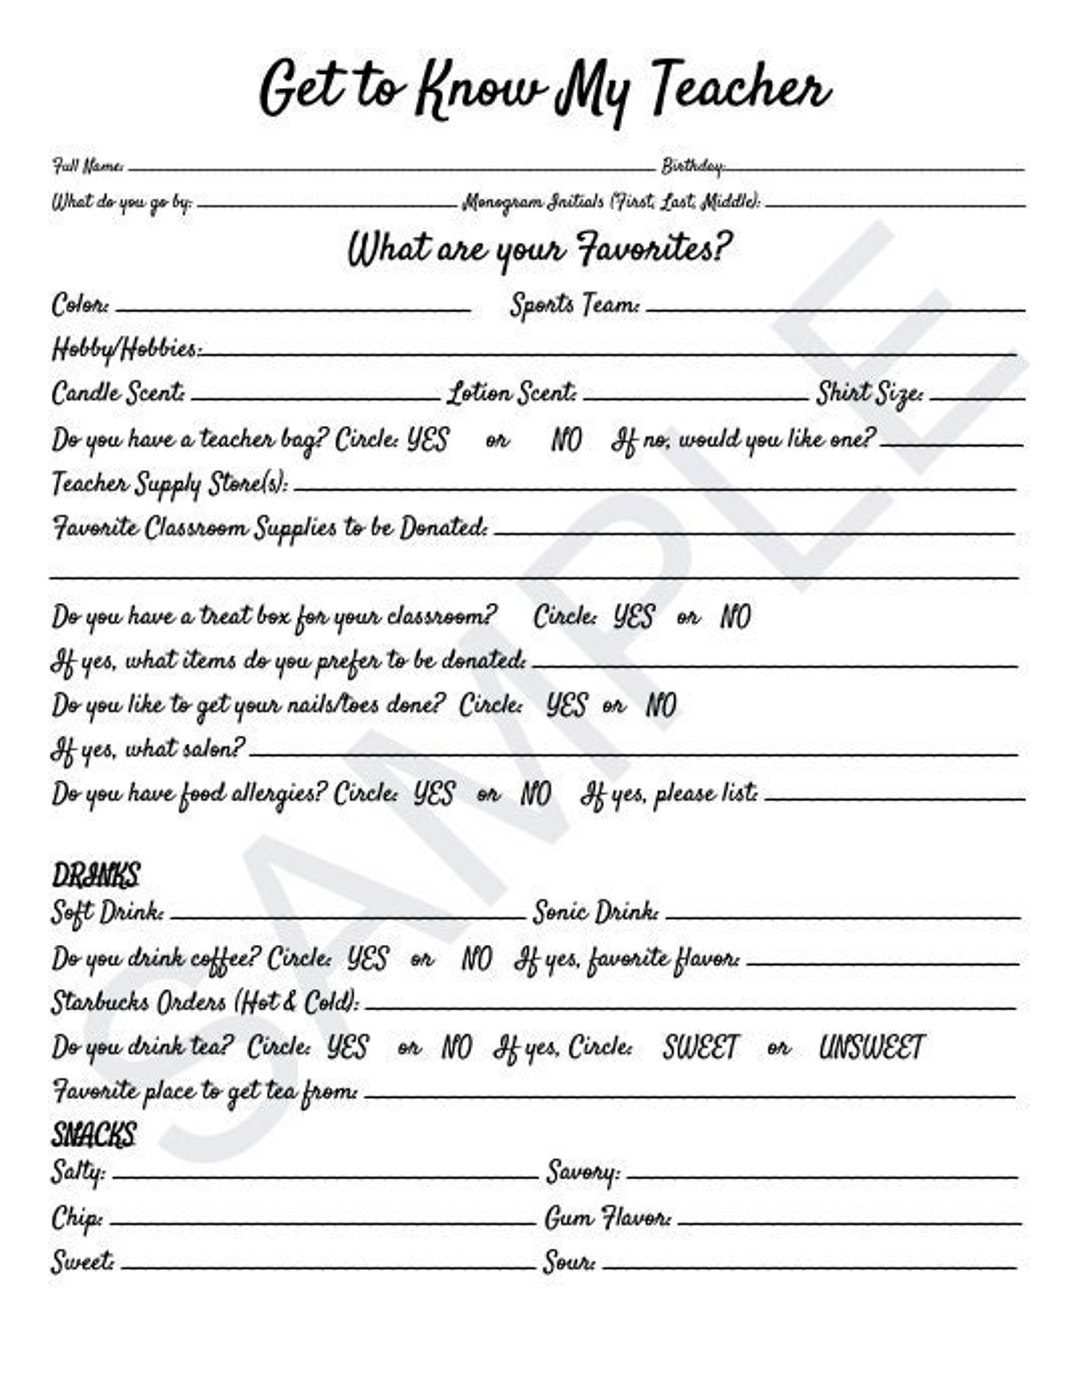 Get to Know My Teacher
Full Name: Birthday:
What do you go by: Monogram Initials (First, Last, Middle):
What are your Favorites?
Color: Sports Team:
Hobby/Hobbies:
Candle Scent: Lotion Scent: Shirt Size:
Do you have a teacher bag? Circle: YES or NO If no, would you like one?
Teacher Supply Store(s):
Favorite Classroom Supplies to be Donated:
Do you have a treat box for your classroom? Circle: YES or NO
If yes, what items do you prefer to be donated:
Do you like to get your nails/toes done? Circle: YES or NO
If yes, what salon?
Do you have food allergies? Circle: YES or NO If yes, please list:
DRINKS
Soft Drink: Sonic Drink:
Do you drink coffee? Circle: YES or NO If yes, favorite flavor:
Starbucks Orders (Hot & Cold):
Do you drink tea? Circle: YES or NO If yes, Circle: SWEET or UNSWEET
Favorite place to get tea from:
SNACKS
Salty: Savory:
Chip: Gum Flavor:
Sweet: Sour:
SAMPLE